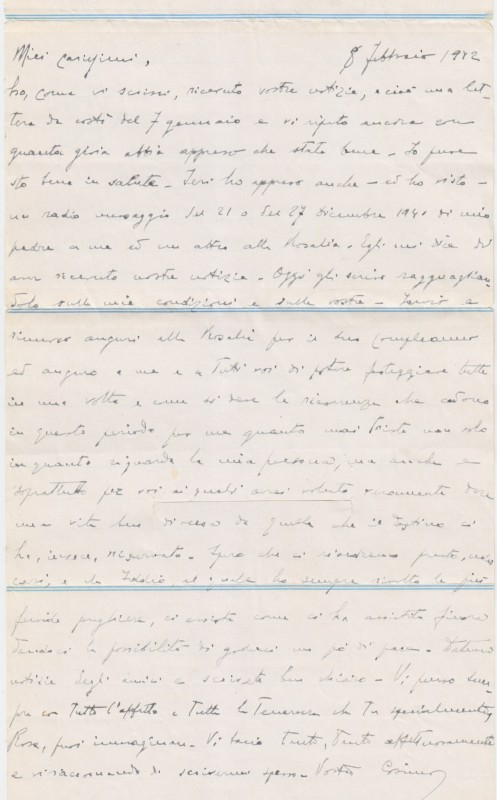 Miei carissimi, 8 febbraio 1942
ho, come vi scrissi, ricevuto vostre notizie, e cioè una let-
tera da costì del 7 gennaio e vi ripeto ancora con
quanta gioia abbia appreso che state bene. Io pure
sto bene in salute. Ieri ho appreso anche - ed ho visto -
un radio messaggio del 21 o del 27 dicembre 1941 di mio
padre a me ed un altro alla Rosalia. Egli mi dice di
aver ricevuto nostre notizie. Oggi gli scrivo ragguaglian-
dolo sulle mie condizioni e sulle vostre. Invio a
rinnovo auguri alla Rosalia per il suo compleanno
ed auguro a me e a tutti voi di potere festeggiare tutte
in una volta e come si deve le ricorrenze che cadono
in questo periodo per me quanto mai triste non solo
in quanto riguarda la mia persona, ma anche e
soprattutto per voi ai quali avrei voluto veramente dare
una vita ben diversa da quella che il destino ci
ha, invece, riservato. Spero che ci rivedremo presto, miei
cari, e che Iddio, al quale ho sempre rivolto le più
fervide preghiere, ci assista come ci ha assistito finora
dandoci la possibilità di goderci un pò di pace. Datemi
notizie degli amici e scrivete ben chiaro. Vi penso sem-
pre con tutto l'affetto e tutta la tenerezza che tu specialmente,
Rosa, puoi immaginare. Vi bacio tanto, tanto affettuosamente
e vi raccomando di scrivermi spesso. Vostro Cosimo